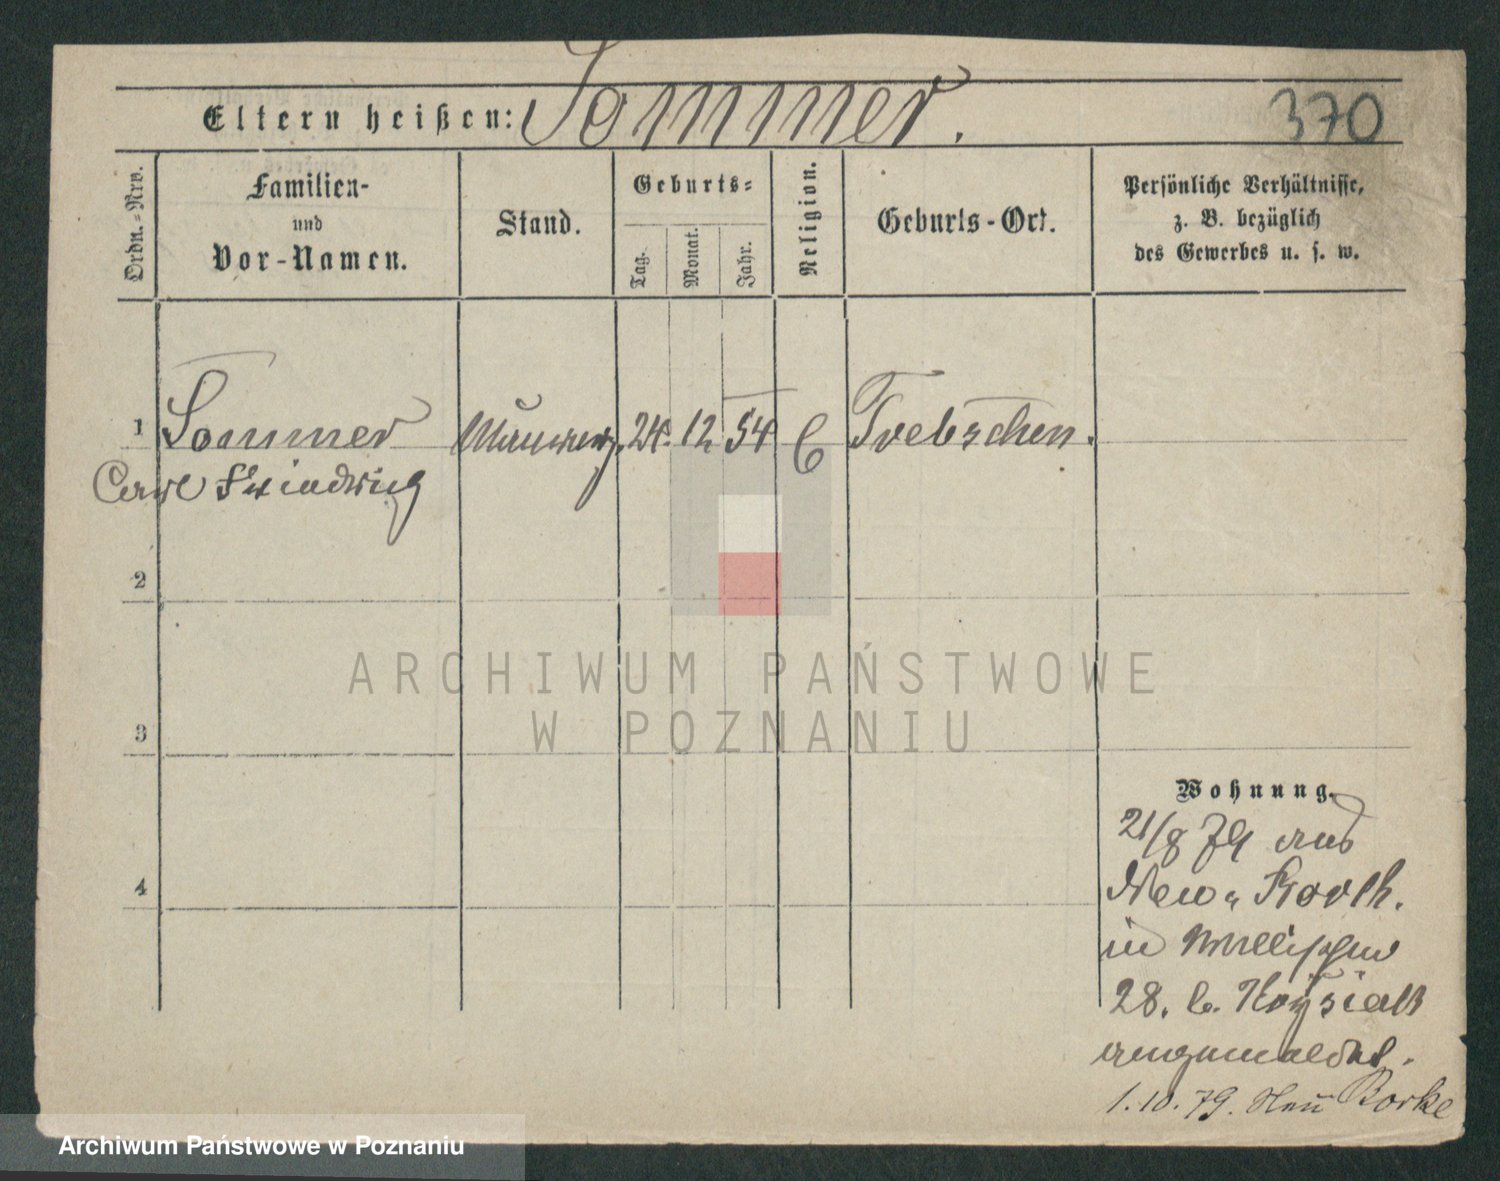 Eltern heißen: Sommer. 370
Ordn.-Nro.
Familien-
und
Vor-Namen.
Stand.
Geburts-
Tag.
Monat.
Jahr.
Religion.
Geburts-Ort.
Persönliche Verhältnisse,
z. B. bezüglich
des Gewerbes u. s. w.
1 Sommer 24. 12 54 Trebschen.
Carl
2
3
4
Wohnung.
21/8 79 aus
New
in
28. b.
angemeldet.
1.10.79. Borke
ARCHIWUM PAŃSTWOWE
W POZNANIU
Archiwum Państwowe w Poznaniu